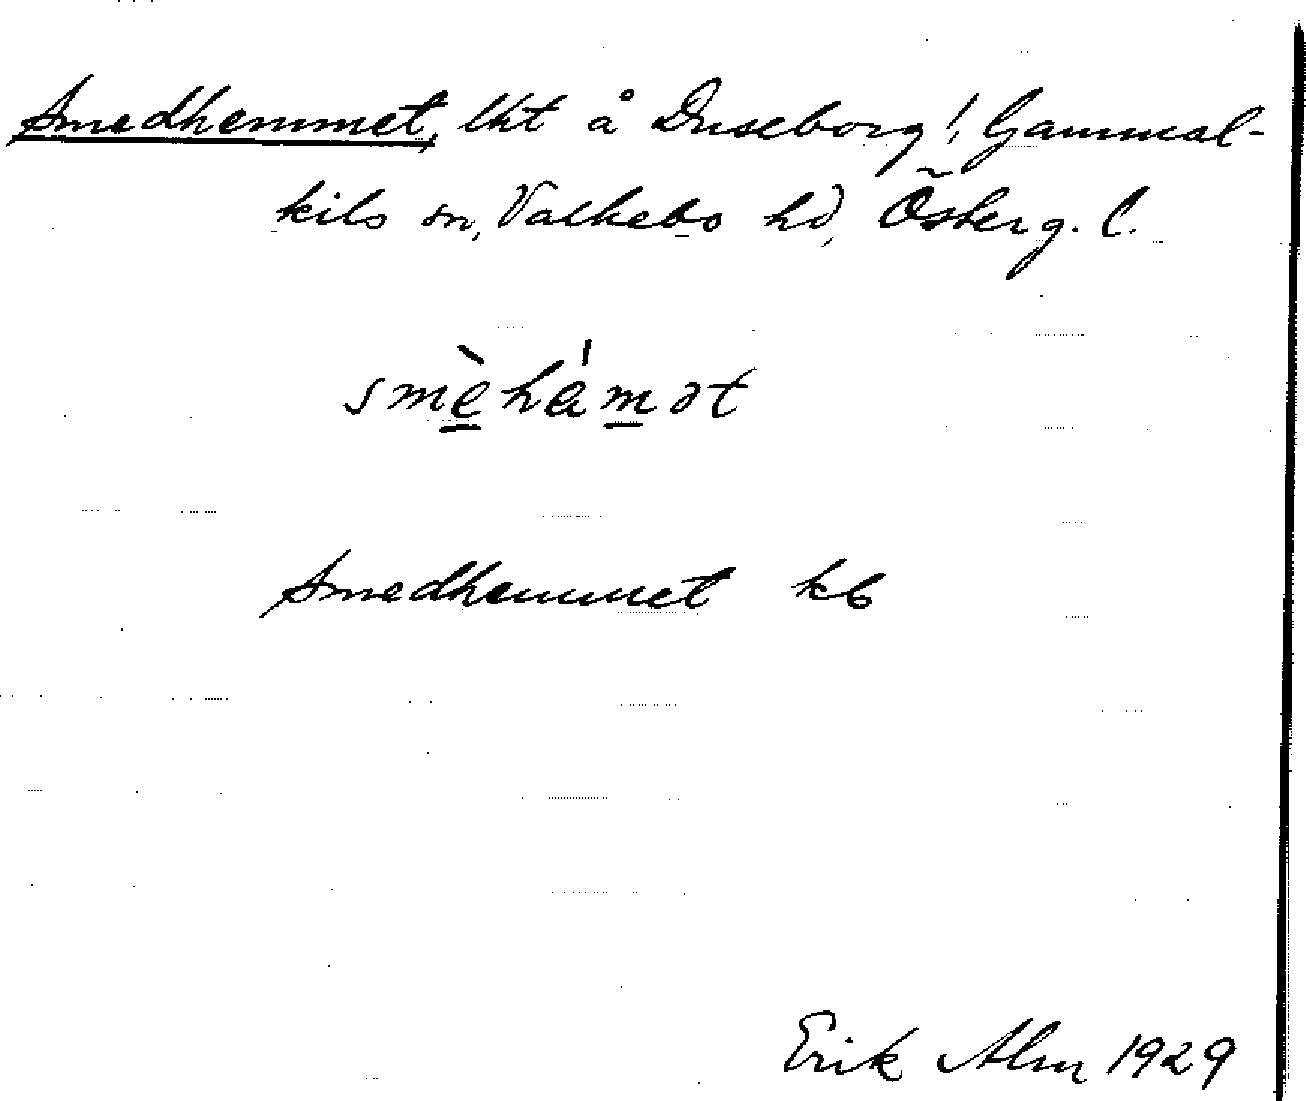 Smedhemmet, lht å Duseborg!, Gammal-
kils sn, Valkebo hd, Österg. l.
smèhámət
Smedhemmet kb
Erik Alm 1929